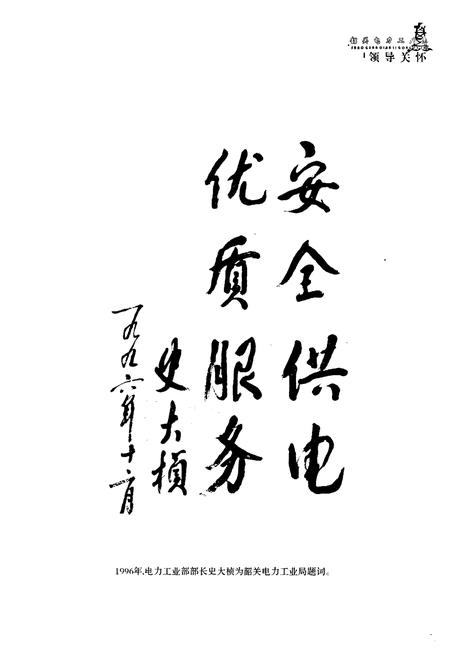 领导关怀
安全供电
优质服务
史大桢
一九九六年十二月
1996年,电力工业部部长史大桢为韶关电力工业局题词。